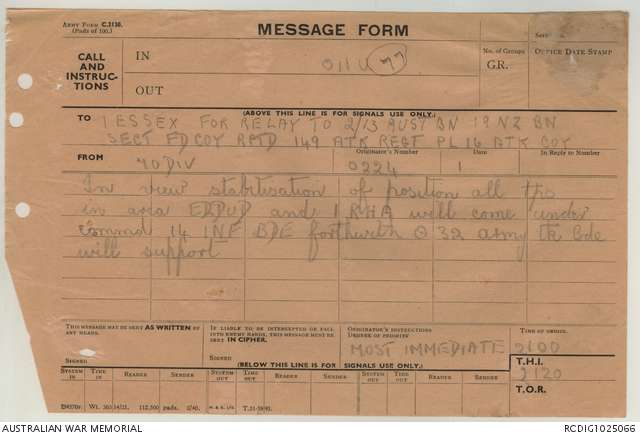 Army Form C.2136.
(Pads of 100.)
MESSAGE FORM
CALL
AND
INSTRUC-
TIONS
IN
OUT
011U 77
No. of Groups
GR.
Office Date Stamp
(ABOVE THIS LINE IS FOR SIGNALS USE ONLY.)
TO 1 ESSEX FOR RELAY TO 2/13 AUST BN 19 NZ BN
SECT FD COY RPTD 149 ATK REGT PL 16 ATK COY
FROM
Originator's Number
Date
In Reply to Number
70 DIV
0224
1
In view stabilisation of position all tps
in area EDDUD and 1 RHA will come under
command 14 INF BDE forthwith 32 army tk bde
will support
THIS MESSAGE MAY BE SENT AS WRITTEN BY
ANY MEANS.
SIGNED
IF LIABLE TO BE INTERCEPTED OR FALL
INTO ENEMY HANDS, THIS MESSAGE MUST BE
SENT IN CIPHER.
SIGNED
ORIGINATOR'S INSTRUCTIONS
DEGREE OF PRIORITY
MOST IMMEDIATE
TIME OF ORIGIN.
2100
(BELOW THIS LINE IS FOR SIGNALS USE ONLY.)
T.H.I.
2120
T.O.R.
SYSTEM IN
TIME IN
READER
SENDER
SYSTEM OUT
TIME OUT
READER
SENDER
SYSTEM OUT
TIME OUT
READER
SENDER
112,500 pads. 2/40.
AUSTRALIAN WAR MEMORIAL
RCDIG1025066